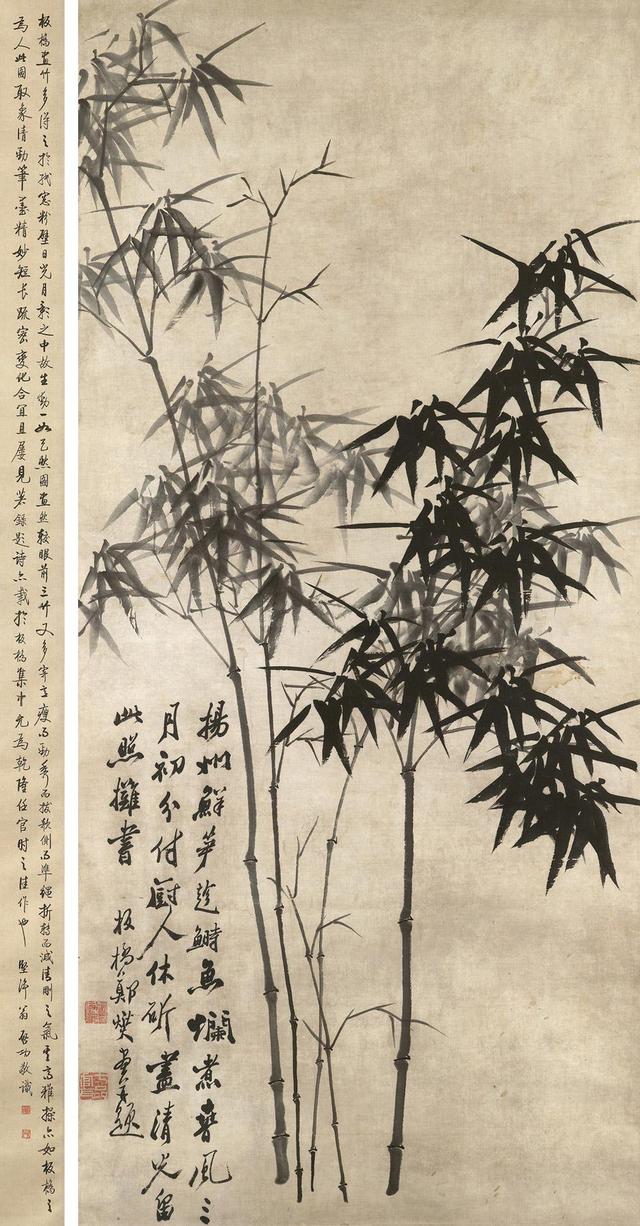 揚州鮮笋趁鰣魚爛煮春風三
月初分付廚人休斫盡清光留
此照攤書 板橋鄭燮畫并題
板橋畫竹多得之於紙窓粉壁日光月影之中故生動一如圖畫然較眼前之竹又多瘦而勁秀而拔欹側而準繩折轉而清剛之氣高雅操亦如板橋之
為人此圖取象清勁筆墨精妙短長疏密變化合宜且屢見著錄題詩亦載於板橋集中尤為乾隆任官時之佳作也 堅淨翁啟功敬識